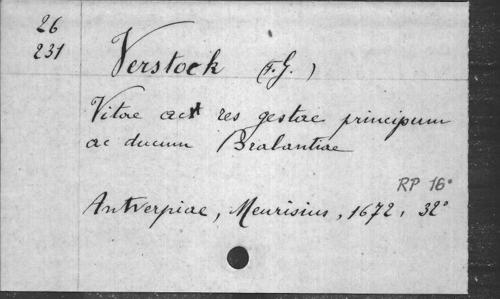 26
231
Verstock (F. G.)
Vitae act res gestae principum
ac ducum Brabantiae
RP 16°
Antverpiae, Meurisius, 1672, 32°